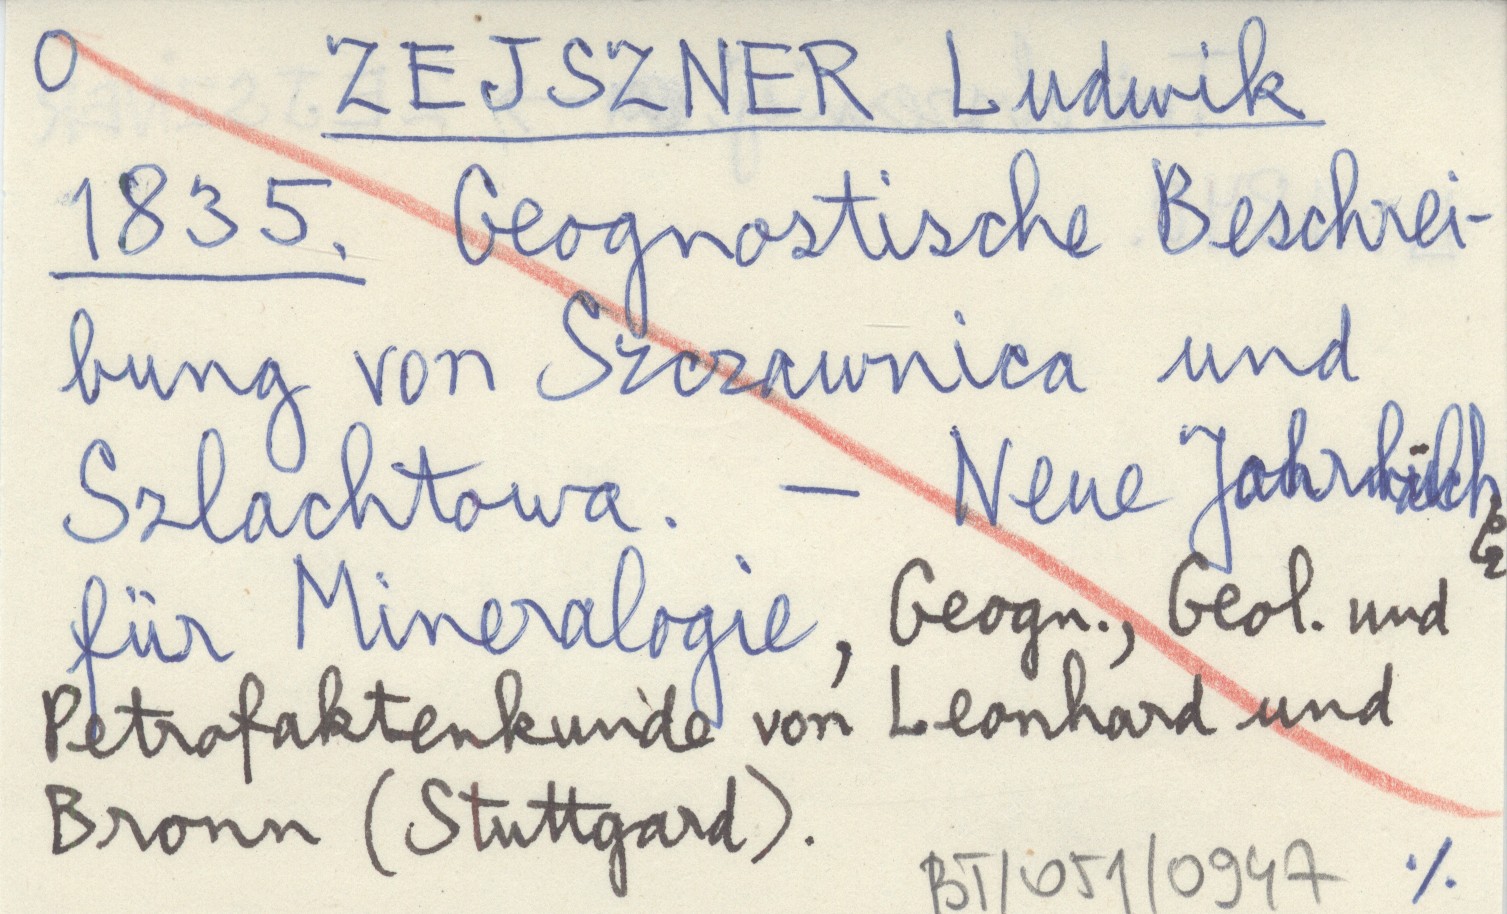 O ZEJSZNER Ludwik
1835. Geognostische Beschrei-
bung von Szczawnica und
Szlachtowa. — Neue
für Mineralogie, Geogn., Geol. und
Petrofaktenkunde von Leonhard und
Bronn (Stuttgard).
BT/051/0947 ·/.